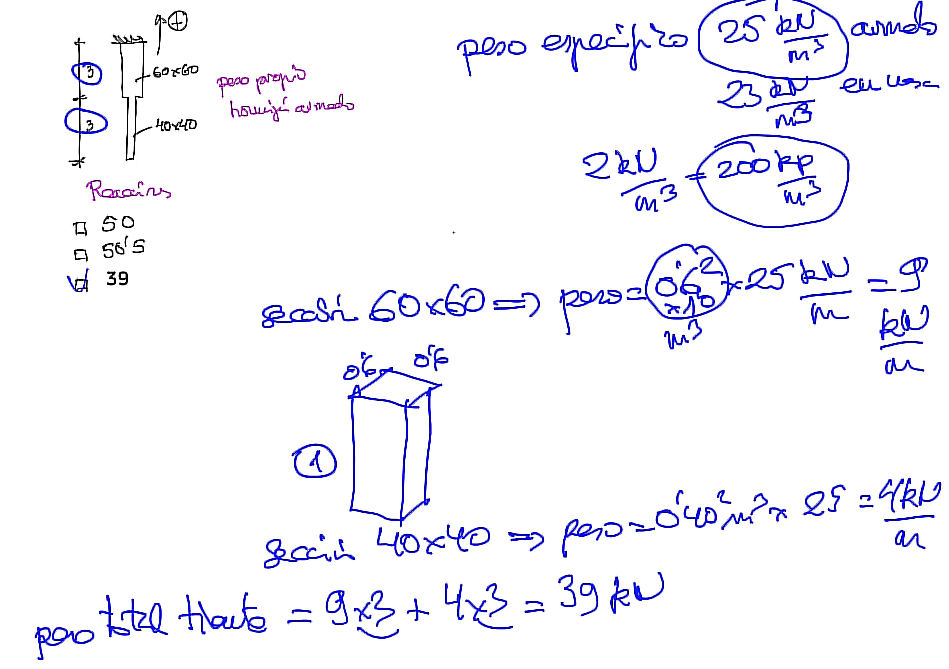 +
3
60x60
3
40x40
peso propio
hormigón armado
Reacciones
50
50'5
39
peso específico 25 kN/m³ armado
23 kN/m³ en masa
2 kN/m³ = 200 kp/m³
sección 60x60 ⇒ peso = 0'6² x 25 kN/m = 9 kN/m
x 1'0
m³
0'6 0'6
1
sección 40x40 ⇒ peso = 0'40² m³ x 25 = 4 kN/m
peso total = 9x3 + 4x3 = 39 kN